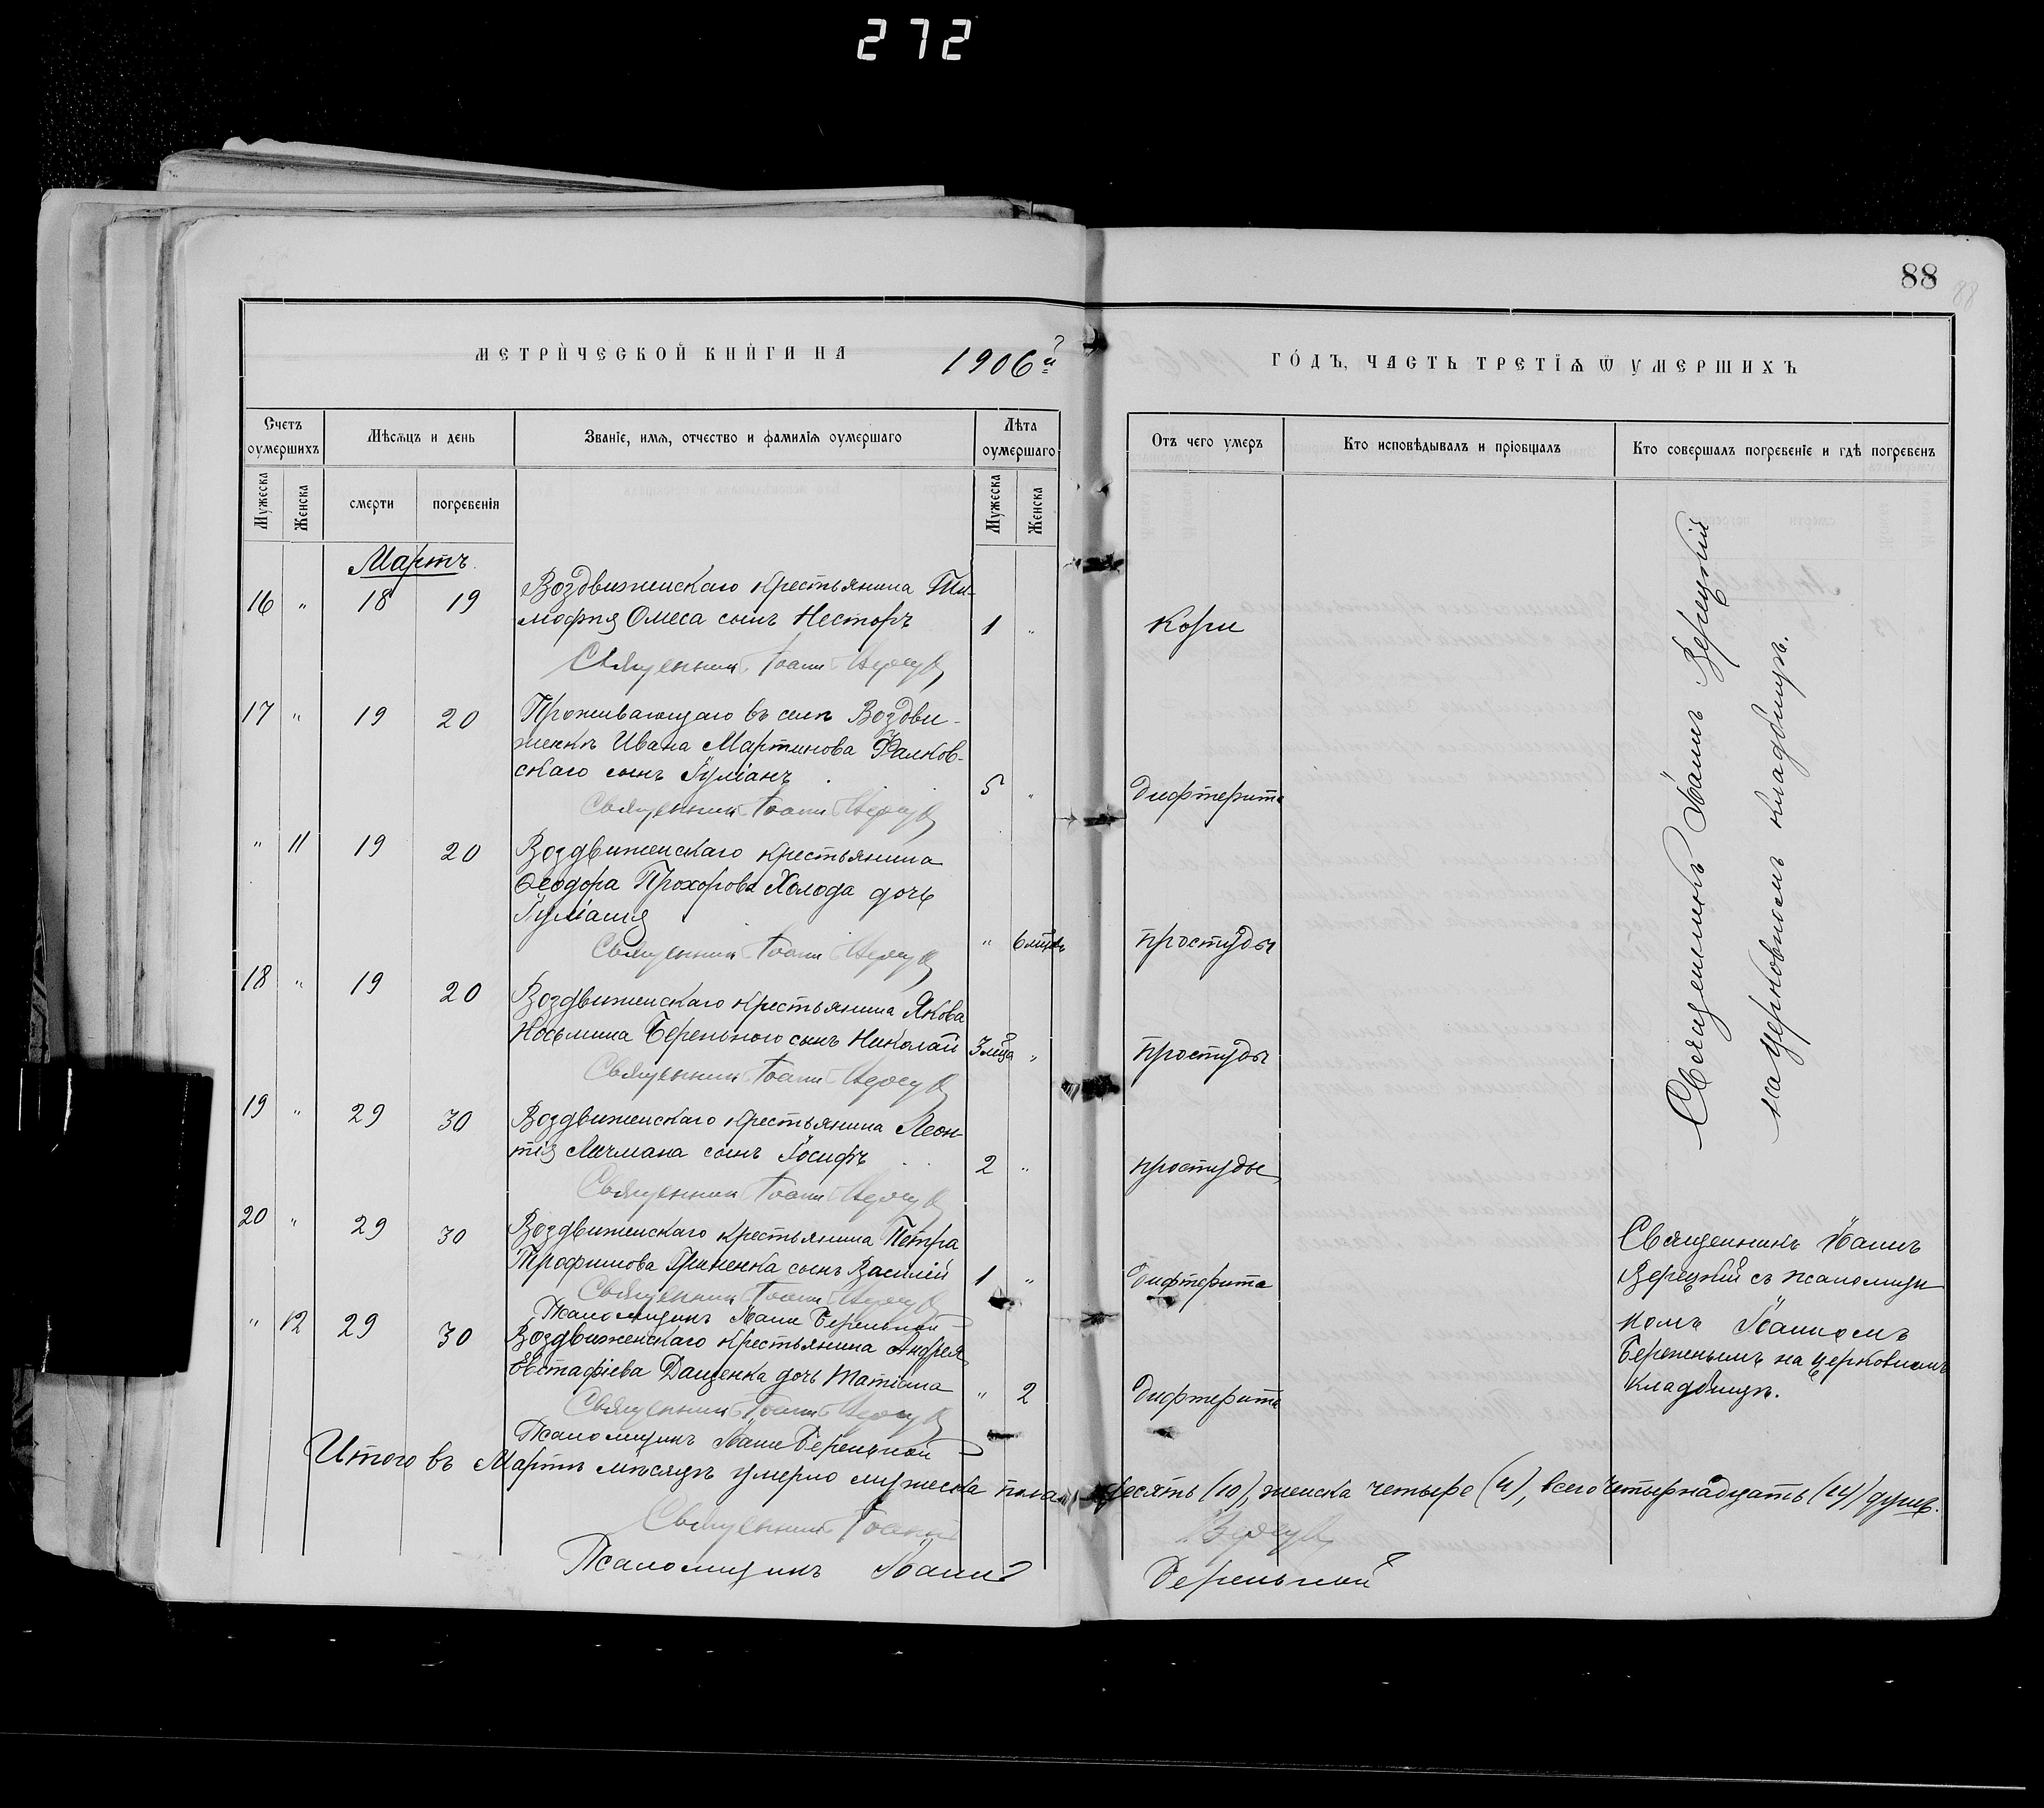 272
88
88
МЕТРИЧЕСКОЙ КНИГИ НА 1906й
ГОДЪ, ЧАСТЬ ТРЕТІѦ Ѿ УМЕРШИХЪ
Счетъ оумершихъ
Мѣсяцъ и день
Званіе, имя, отчество и фамилія оумершаго
Лѣта оумершаго
Отъ чего умеръ
Кто исповѣдывалъ и пріобщалъ
Кто совершалъ погребеніе и гдѣ погребенъ
Мужеска
Женска
смерти
погребенія
Мужеска
Женска
Мартъ
16 " 18 19 Воздвиженскаго крестьянина Ти-
мофея Омеса сынъ Несторъ 1 " Кори
Священникъ Іоаннъ
17 " 19 20 Проживающаго въ селѣ Воздви-
женкѣ Ивана Мартинова Фалков-
скаго сынъ Іуліанъ 5 " Дифтерита
Священникъ Іоаннъ
" 11 19 20 Воздвиженскаго крестьянина
Ѳеодора Прохорова Холода дочь
Іуліанія " 6 мцевъ простуды
Священникъ Іоаннъ
18 " 19 20 Воздвиженскаго крестьянина Якова
Косьмина Береньного сынъ Николай 3 мца " простуды
Священникъ Іоаннъ
19 " 29 30 Воздвиженскаго крестьянина Леон-
тія сынъ Іосифъ 2 " простуды
Священникъ Іоаннъ
20 " 29 30 Воздвиженскаго крестьянина Петра
Трофимова Гриненка сынъ Василій 1 " Дифтерита
Священникъ Іоаннъ
Псаломщикъ Іоаннъ Береньной
" 12 29 30 Воздвиженскаго крестьянина Андрея
Евстафіева Дащенка дочь Татіана " 2 Дифтерита
Священникъ Іоаннъ
Псаломщикъ Іоаннъ Береньной
Священникъ Іоаннъ Верецкій
на церковномъ кладбищѣ.
Священникъ Іоаннъ
Верецкій съ псаломщи
комъ Іоанномъ
Береньнымъ на церковномъ
кладбищѣ.
Итого въ Мартѣ мѣсяцѣ умерло мужеска пола десять (10), женска четыре (4), всего четырнадцать (14) душъ.
Священникъ Іоаннъ
Псаломщикъ Іоаннъ Береньной